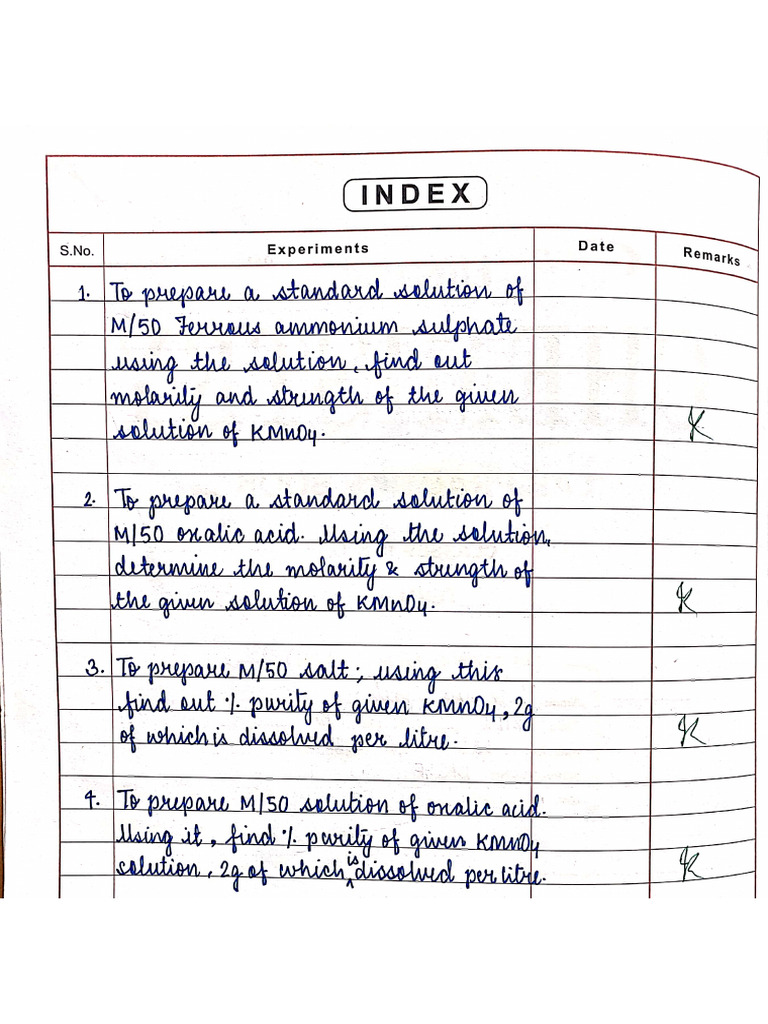 INDEX
S.No. Experiments Date Remarks
1. To prepare a standard solution of
M/50 Ferrous ammonium sulphate
using the solution, find out
molarity and strength of the given
solution of KMnO4. K
2. To prepare a standard solution of
M/50 oxalic acid. Using the solution,
determine the molarity & strength of
the given solution of KMnO4. K
3. To prepare M/50 salt; using this
find out % purity of given KMnO4, 2g
of which is dissolved per litre. K
4. To prepare M/50 solution of oxalic acid.
Using it, find % purity of given KMnO4
solution, 2g of which is dissolved per litre. K